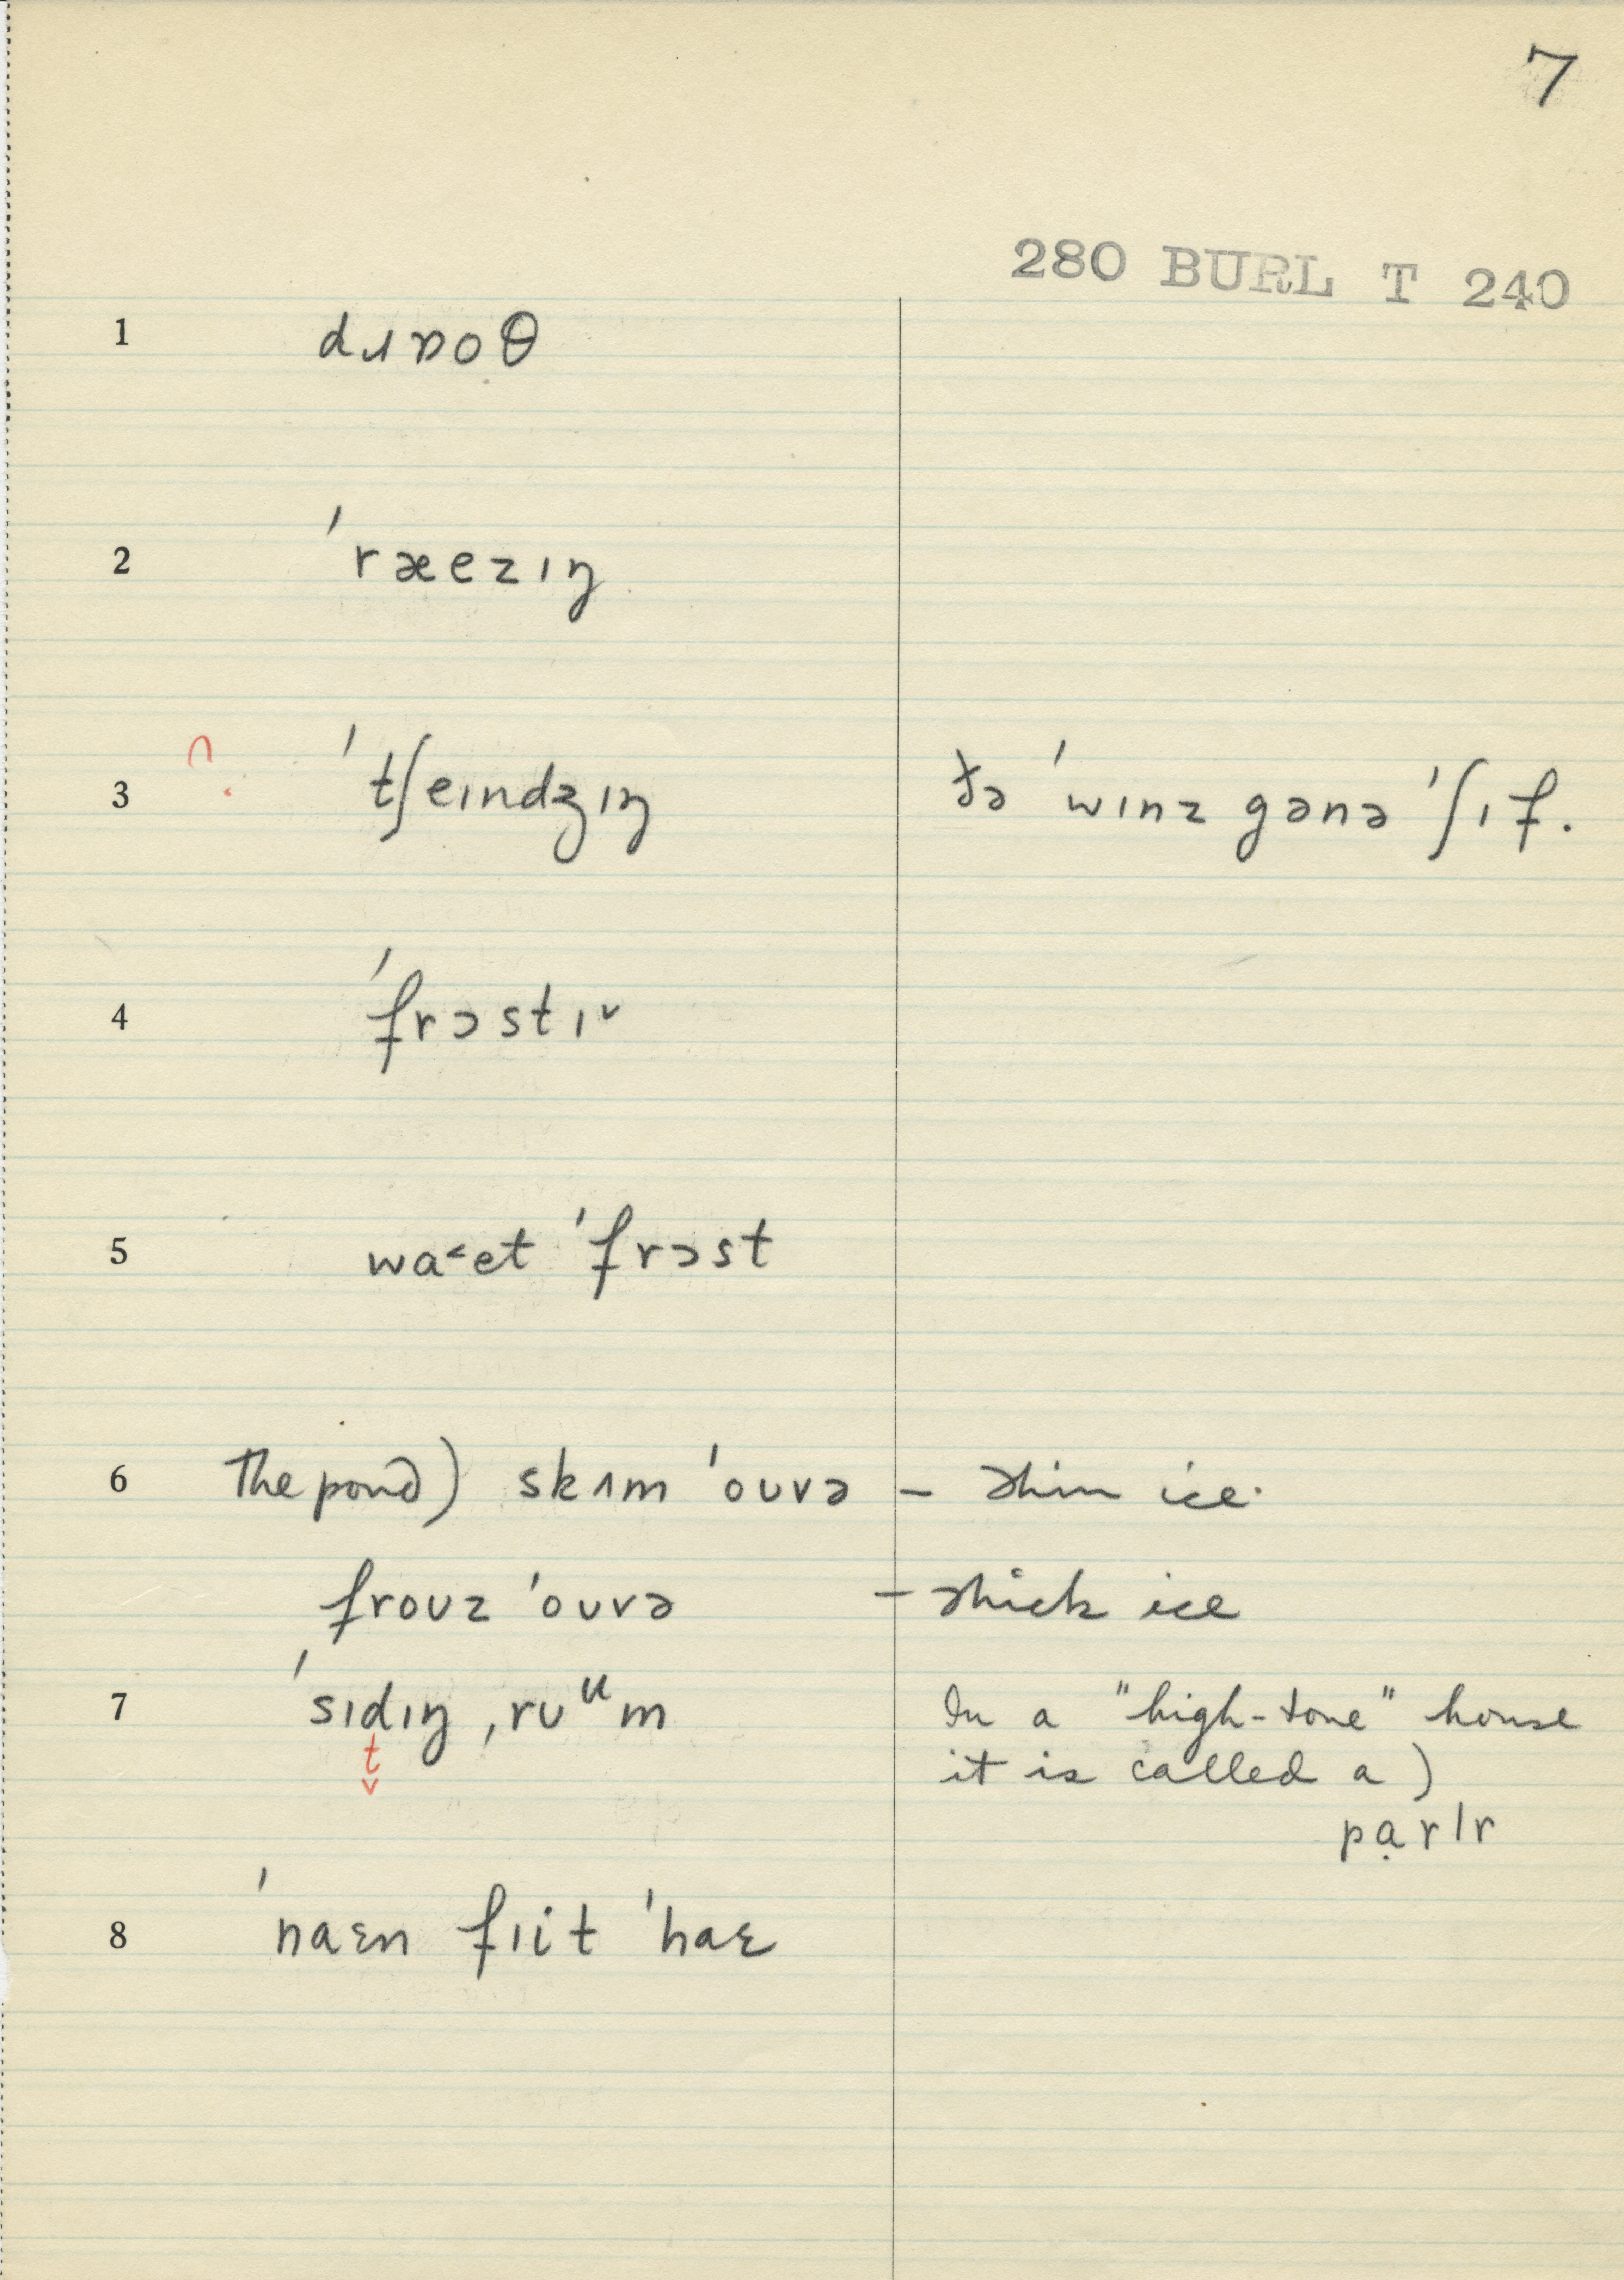 7
280 BURL T 240
1 dɹɒoθ
2 ˈræezɪŋ
3 ˈtʃeɪndʒɪŋ ðə ˈwɪnz gənə ˈʃɪf.
4 ˈfrɔstɪ˅
5 wa˂et ˈfrɔst
6 The pond) skɪm ˈoʊvə – thin ice.
froʊz ˈoʊvə – thick ice
7 ˈsɪdɪŋ ˌrʊᵘm In a "high-tone" house
t̬ it is called a)
pạrlr
8 ˈnaɛn fɪit ˈhaɛ